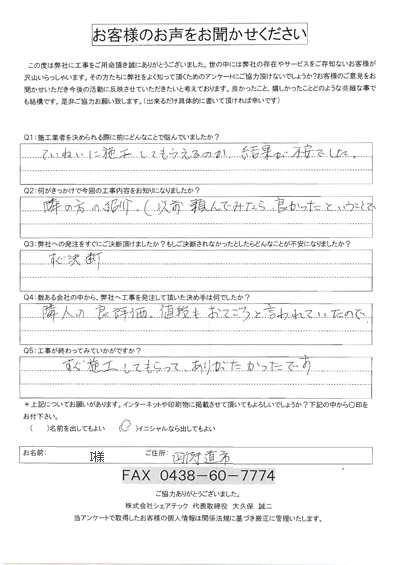 お客様のお声をお聞かせください
この度は弊社に工事をご用命頂き誠にありがとうございました。世の中には弊社の存在やサービスをご存知ないお客様が
沢山いらっしゃいます。その方たちに弊社をよく知って頂くためのアンケートにご協力頂けないでしょうか？お客様のご意見をお
聞かせいただき今後の活動に反映させていただきたいと考えております。良かったこと、嬉しかったことどのような些細な事で
も結構です。是非ご協力お願い致します。（出来るだけ具体的に書いて頂ければ幸いです）
Q1:施工業者を決められる際に前にどんなことで悩んでいましたか？
ていねいに施工してもらえるのか、結果が不安でした。
Q2:何がきっかけで今回の工事内容をお知りになりましたか？
隣の方の紹介。（以前頼んでみたら、良かったということで
Q3:弊社への発注をすぐにご決断頂けましたか？もしご決断されなかったとしたらどんなことが不安になりましたか？
すぐ決断
Q4:数ある会社の中から、弊社へ工事を発注して頂いた決め手は何でしたか？
隣人の良評価。値段もおてごろと言われていたので
Q5:工事が終わってみていかがですか？
すぐ施工してもらって、ありがたかったです
＊上記についてお願いがあります。インターネットや印刷物に掲載させて頂いてもよろしいでしょうか？下記の中から〇印を
お付下さい。
（　）名前を出してもよい　（〇）イニシャルなら出してもよい
お名前：　I様　ご住所：　四街道市
FAX 0438-60-7774
ご協力ありがとうございました。
株式会社シェアテック 代表取締役 大久保 誠二
当アンケートで取得したお客様の個人情報は関係法規に基づき厳正に管理いたします。